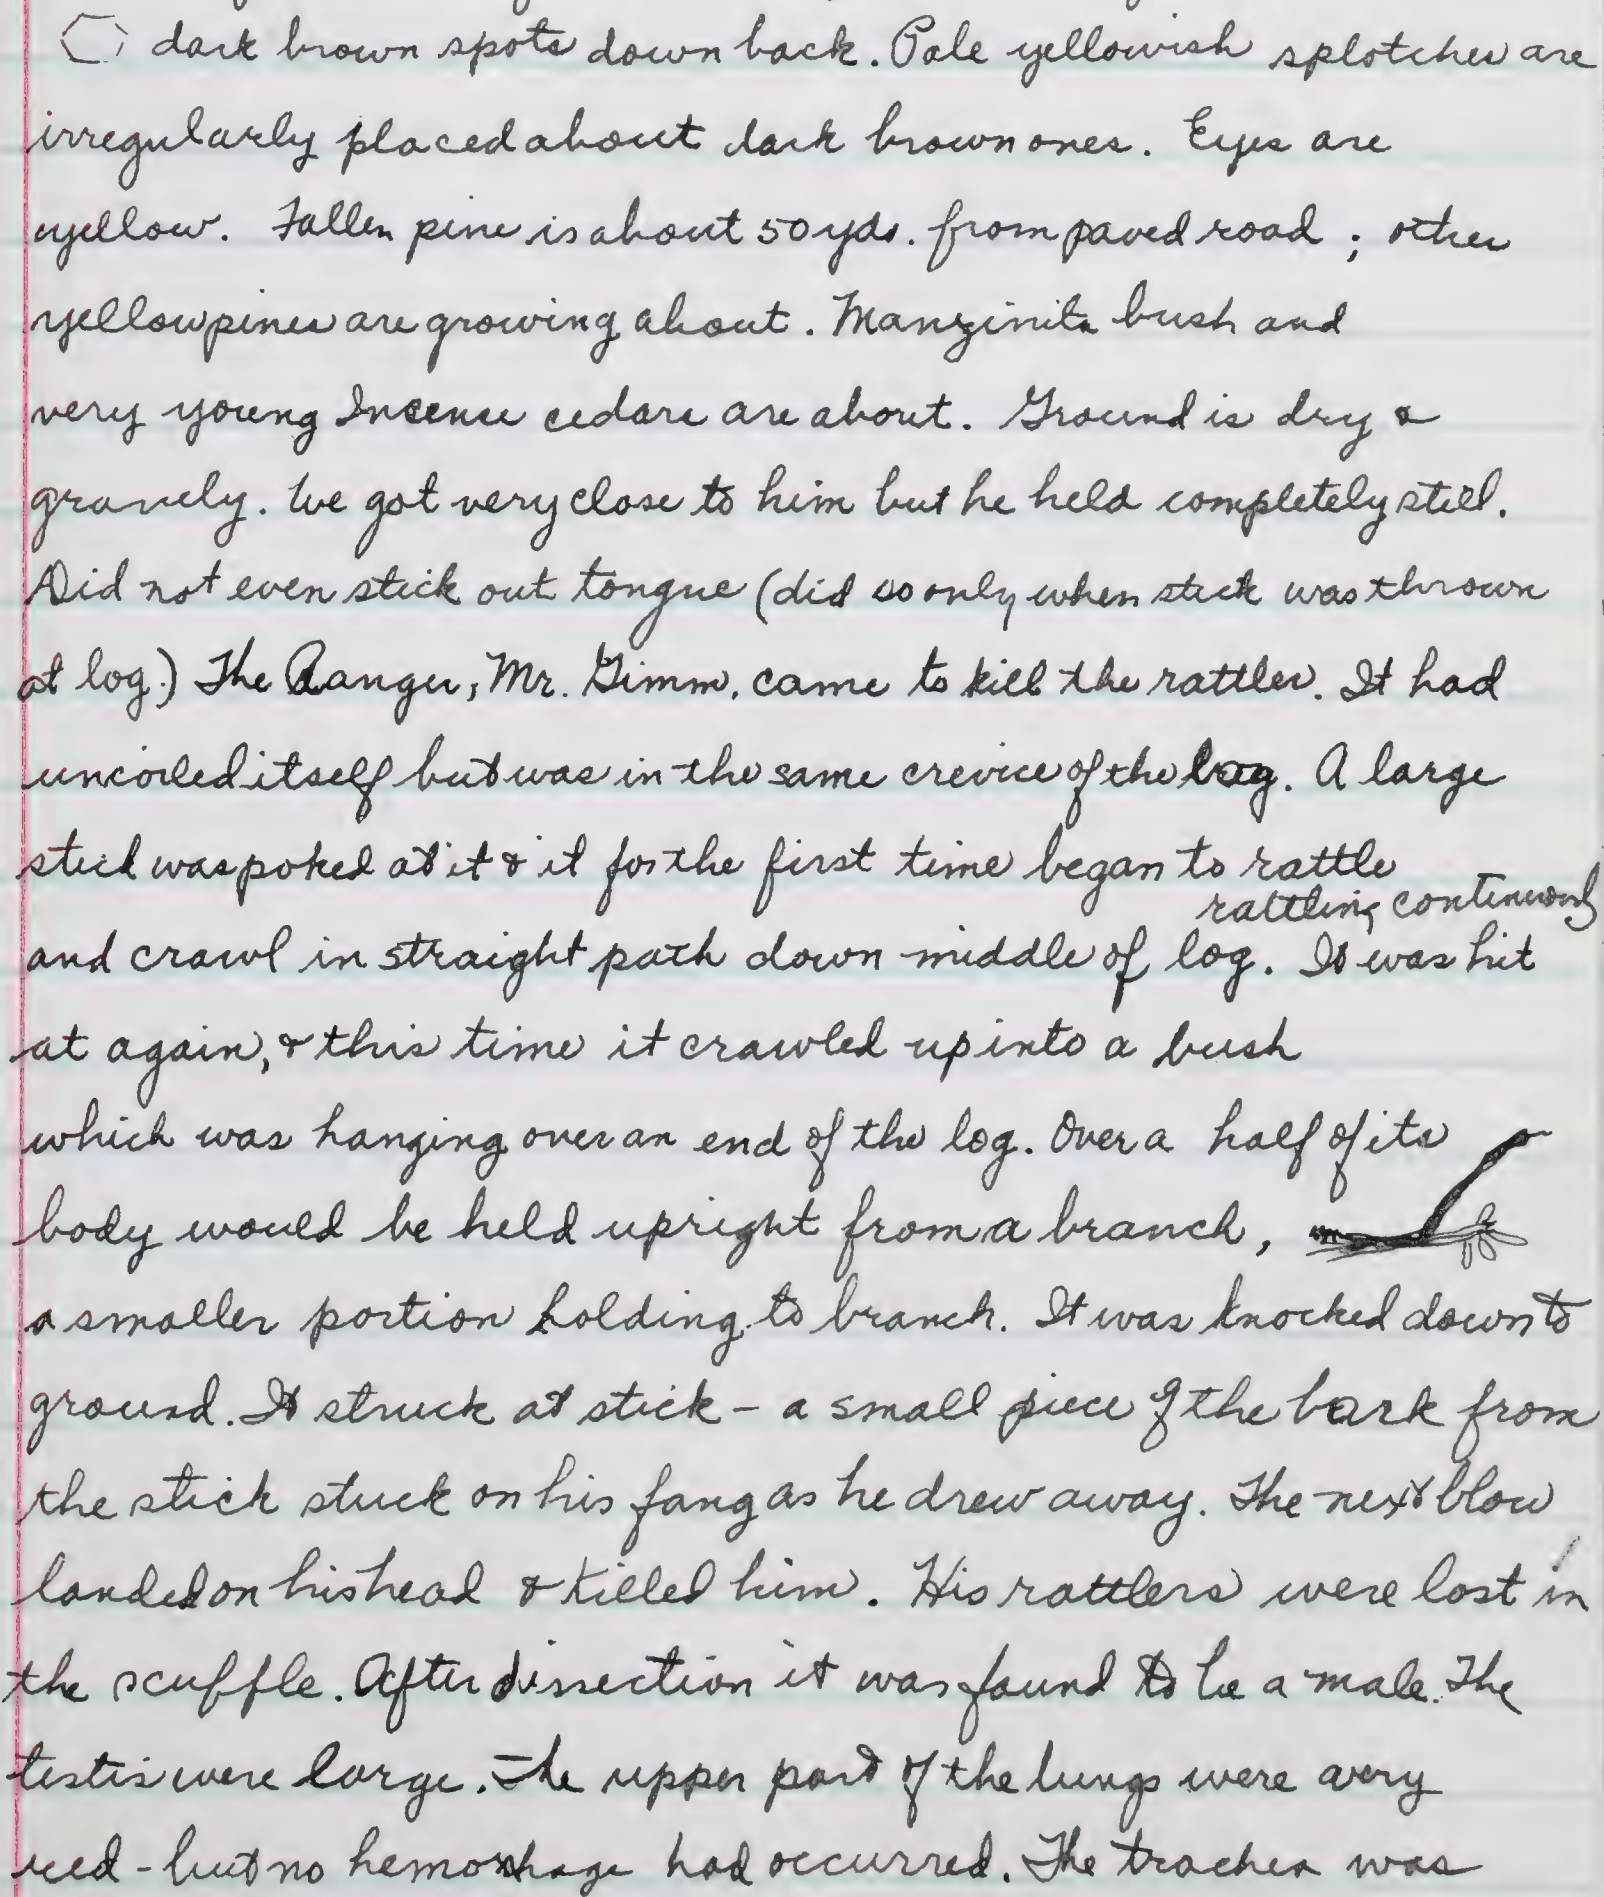 dark brown spots down back. Pale yellowish splotches are
irregularly placed about dark brown ones. Eyes are
yellow. Fallen pine is about 50 yds. from paved road ; other
yellow pines are growing about. Manzinita bush and
very young Incense cedars are about. Ground is dry &
gravely. We got very close to him but he held completely still.
Did not even stick out tongue (did so only when stick was thrown
at log.) The Ranger, Mr. Gimm, came to kill the rattler. It had
uncoiled itself but was in the same crevice of the log. A large
stick was poked at it & it for the first time began to rattle
rattling continuously
and crawl in straight path down middle of log. It was hit
at again, & this time it crawled up into a bush
which was hanging over an end of the log. Over a half of its
body would be held upright from a branch,
a smaller portion holding to branch. It was knocked down to
ground. It struck at stick - a small piece of the bark from
the stick stuck on his fang as he drew away. The next blow
landed on his head & killed him. His rattlers were lost in
the scuffle. After dissection it was found to be a male. The
testis were large. The upper part of the lungs were very
red - but no hemorrhage had occurred. The trachea was